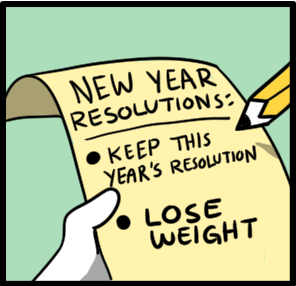 NEW YEAR
RESOLUTIONS:
• KEEP THIS
YEAR'S RESOLUTION
• LOSE
WEIGHT